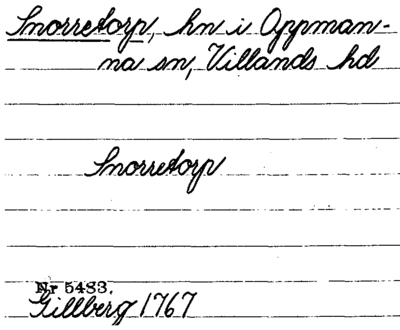 Snorretorp, hn i Oppman-
na sn, Villands hd
Snorretorp
Nr 5483.
Gillberg 1767